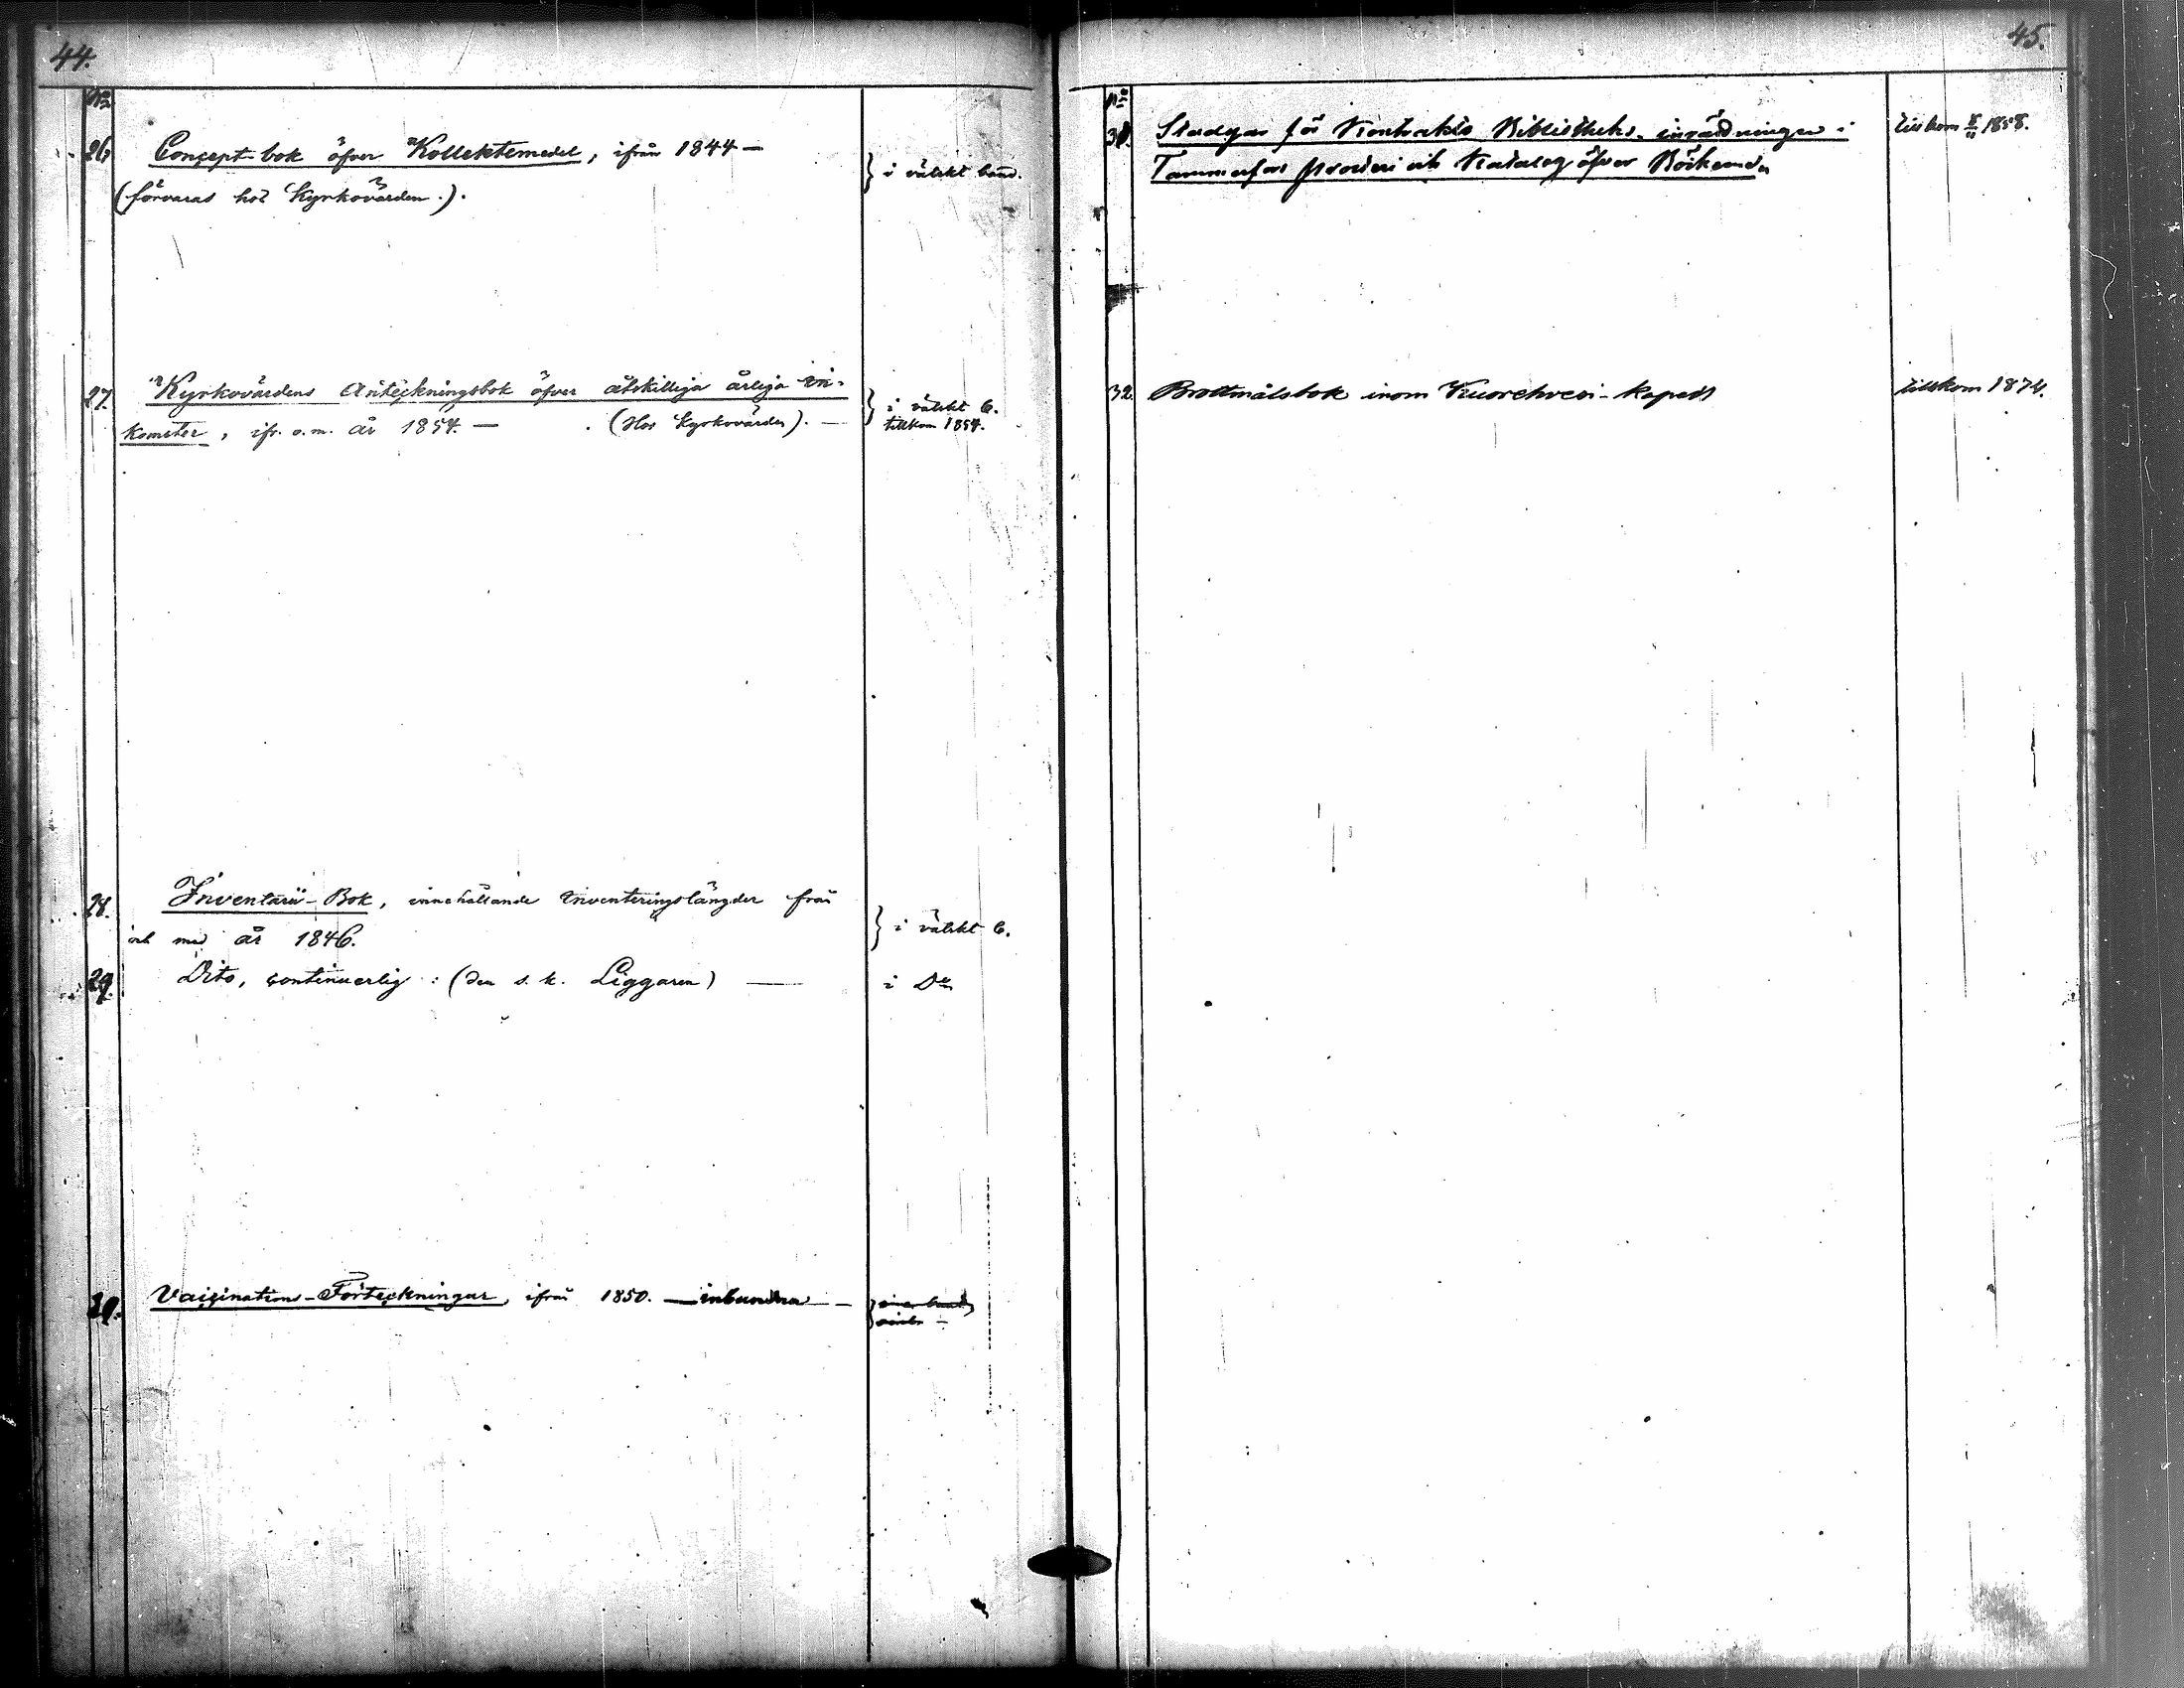 44.
No
26. Concept-bok öfver Kollektemedel, ifrån 1844 — } i välskt band.
(förvaras hos Kyrkovärden.).
27. Kyrkovärdens Anteckningsbok öfver åtskilliga årliga in- } i välskt b.
komster, ifr. o. m. år 1854. — (Hos Kyrkovärden). — tillkom 1854.
28. Inventarii-Bok, innehållande Inventeringslängder från } i välskt b.
och med år 1846.
29. Dito, continuerlig: (den s. k. Liggaren) — i Do
30. Vaccinations-Förteckningar, ifrån 1850. — inbundna —
45.
No
31. Stadgar för Kontrakts Bibliotheks-inrädningen i tillkom 1858.
Tammerfors prosteri och Katalog öfver Böckerna
32 Brottmålsbok inom Kuorehvesi-kapell tillkom 1874.